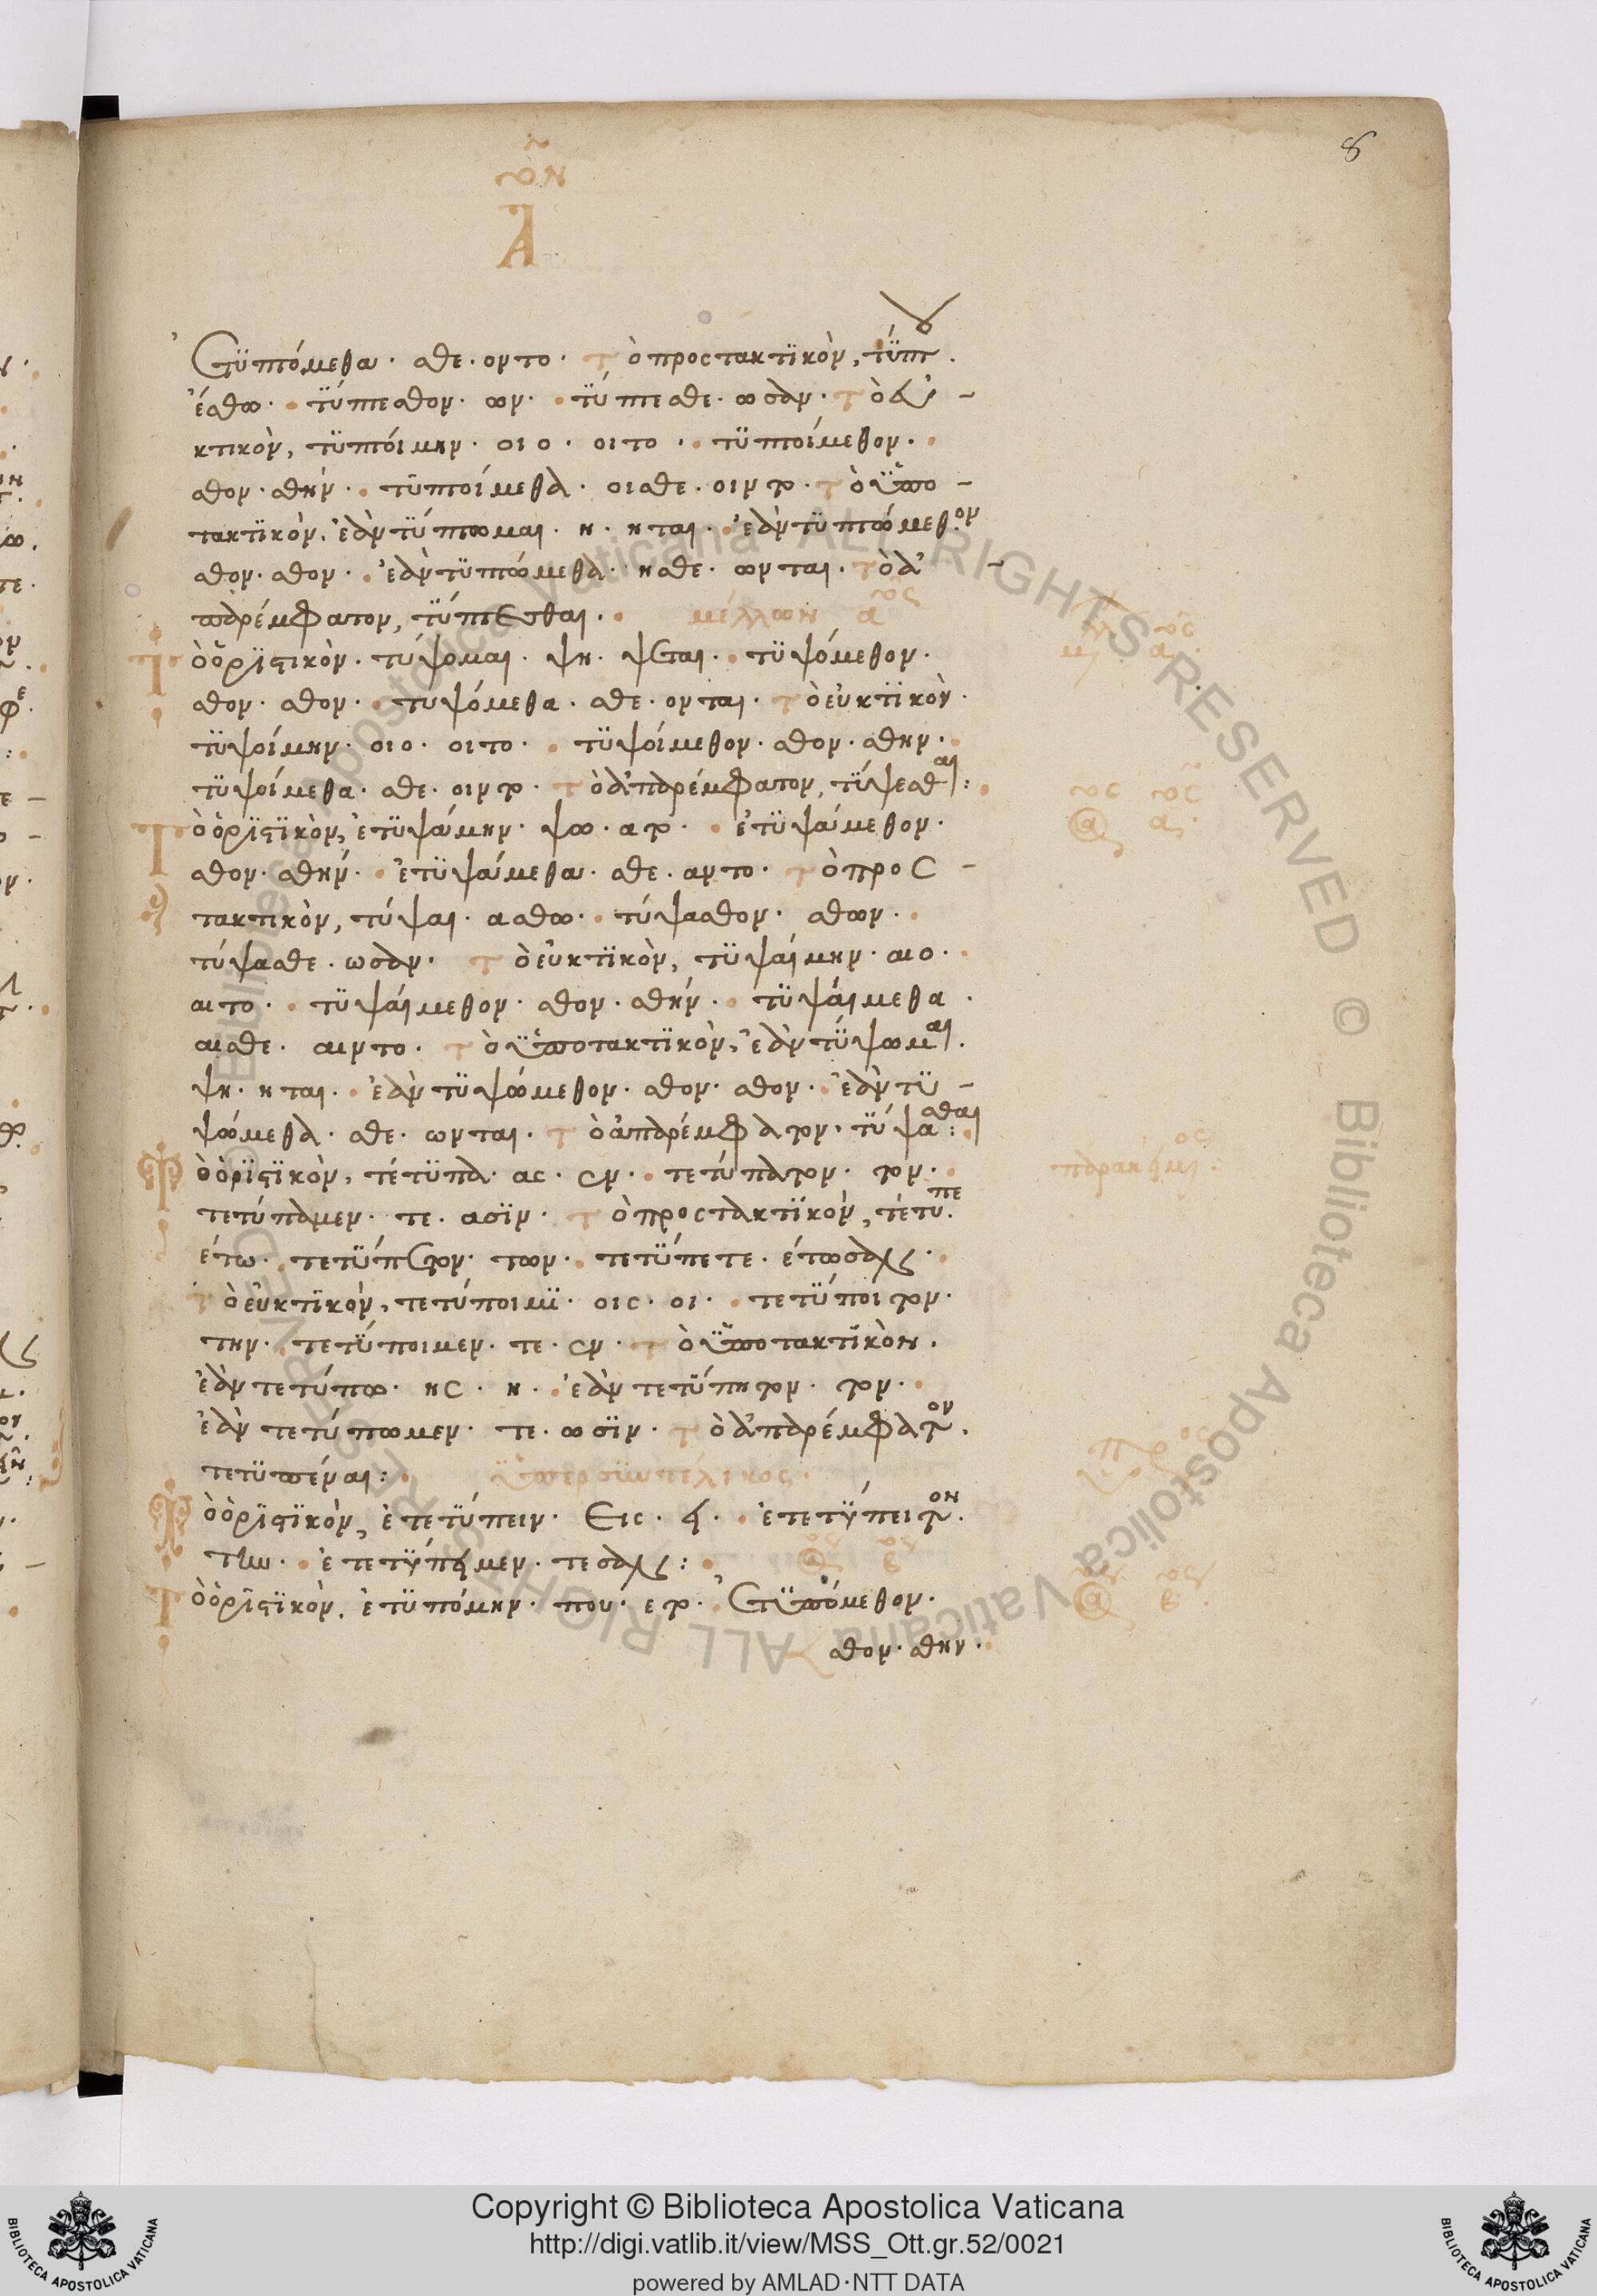 8
τῶν
Α
ἐτϋπτόμεθα· σθε· οντο· τὸ προστακτϊκὸν, τΰπτου.
έσθω· τΰπτεσθον· ων· τΰπτεσθε· ωσαν· τὸ εὐ-
κτικὸν, τϋπτόιμην· οιο· οιτο· τϋπτοίμεθον·
σθον· σθήν· τϋπτοίμεθα· οισθε· οιντο· τὸ ϋ̔πο-
τακτϊκὸν· ἐὰν τΰπτωμαι· η· ηται· ἐὰν τϋπτώμεθον
σθον· σθον· ἐὰν τϋπτώμεθα· ησθε· ωνται· τὸ ἀ-
παρέμφατον, τΰπτεσθαι· μέλλων α
τὸ ὁρϊστικὸν· τύψομαι· ψη· ψεται· τϋψόμεθον·
σθον· σθον· τυψόμεθα· σθε· ονται· τὸ εὐκτϊκὸν·
τϋψοίμην· οιο· οιτο· τϋψοίμεθον· σθον· σθην·
τϋψοίμεθα· σθε· οιντο· τὸ ἀπαρέμφατον, τΰψεσθαι:
τὸ ὁρϊστϊκὸν, ἐτϋψάμην· ψω· ατο· ἐτϋψάμεθον·
σθον· σθήν· ἐτϋψάμεθα· σθε· αντο· τὸ προσ-
τακτικὸν, τύψαι· ασθω· τύψασθον· σθων·
τύψασθε· ωσαν· τὸ εὐκτϊκὸν, τϋψαίμην· αιο·
αιτο· τϋψάιμεθον· σθον· σθήν· τϋψάιμεθα·
αισθε· αιντο· τὸ ϋ̔ποτακτϊκὸν, ἐὰν τΰψωμαι.
ψη· ηται· ἐὰν τϋψώμεθον· σθον· σθον· ἐὰν τϋ-
ψώμεθα· σθε· ωνται· τὸ ἀπαρέμφατον· τΰψασθαι:
τὸ ὁρϊστϊκὸν, τέτϋπα· ας· εν· τετύπατον· τον·
παρακείμενος
τετύπαμεν· τε· ασϊν· τὸ προστακτϊκὸν, τέτυπε.
έτω· τετΰπετον· των· τετΰπετε· έτωσαν·
τὸ εὐκτϊκὸν, τετύποιμϊ· οις· οι· τετΰποιτον·
την· τετΰποιμεν· τε· εν· τὸ ϋ̔ποτακτϊκὸν.
ἐὰν τετύπω· ης· η· ἐὰν τετΰπητον· τον·
ἐὰν τετύπωμεν· τε· ωσϊν· τὸ ἀπαρέμφατον.
τετϋπέναι: ϋ̔περσϋντέλικος·
τὸ ὁρϊστϊκὸν, ἐτετΰπειν· εις· ει· ἐτετΰπειτον.
την· ἐτετΰπειμεν· τε σαν:
τὸ ὁρϊστϊκὸν. ἐτϋπόμην· που· ετο· ἐτϋπόμεθον·
σθον· σθην·
Copyright © Biblioteca Apostolica Vaticana
http://digi.vatlib.it/view/MSS_Ott.gr.52/0021
powered by AMLAD·NTT DATA
BIBLIOTECA APOSTOLICA VATICANA
BIBLIOTECA APOSTOLICA VATICANA